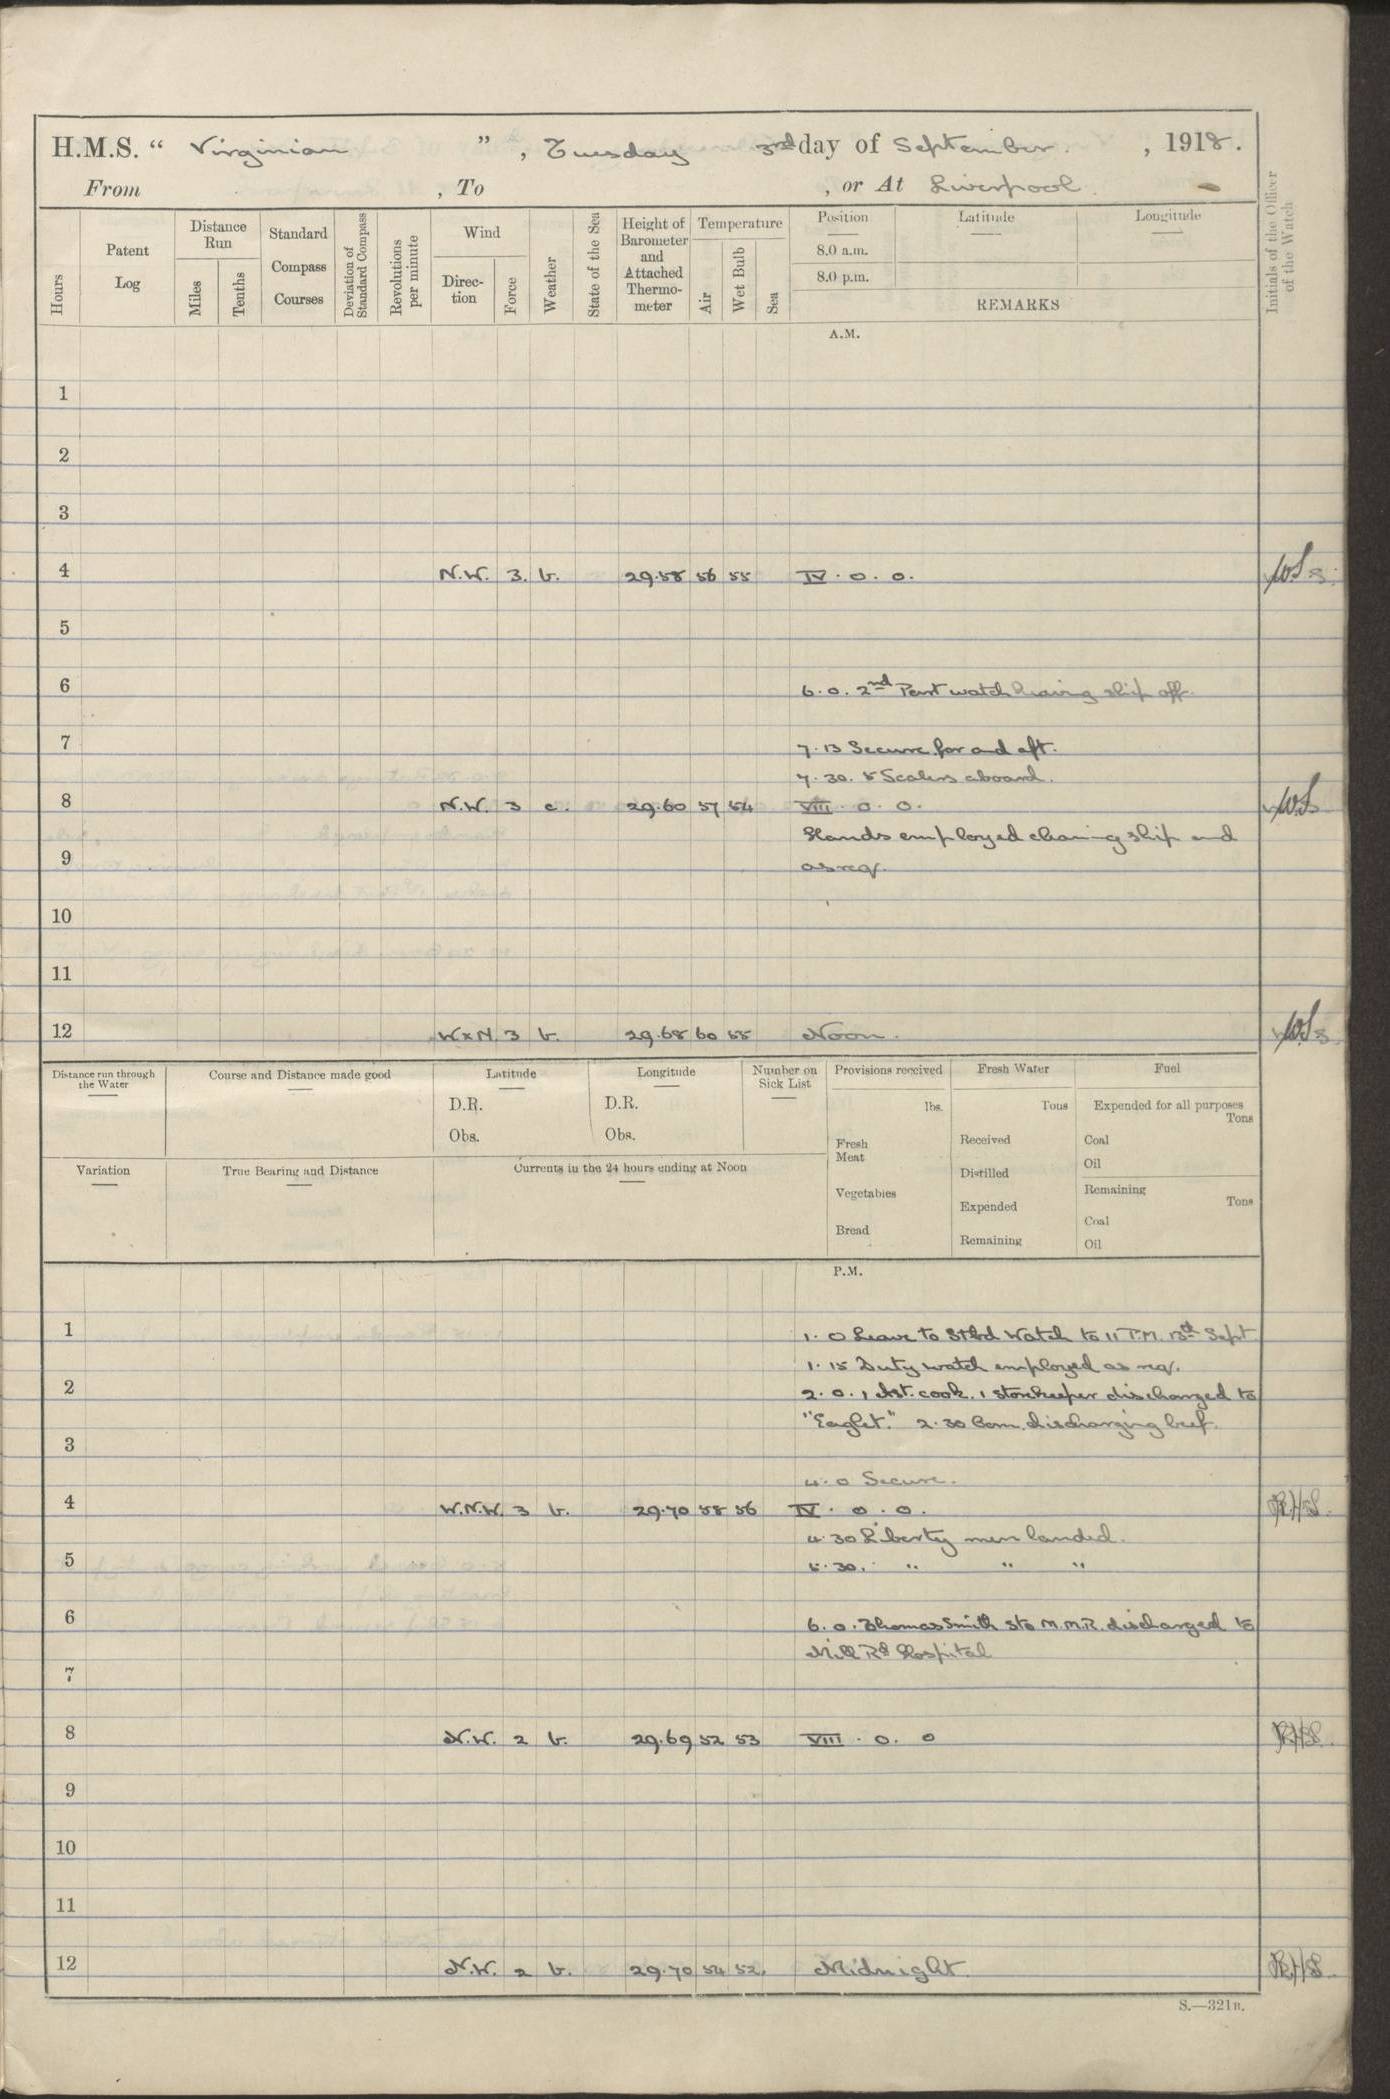 H.M.S. “ Virginian ” , Tuesday 3rd day of September , 1918.
From , To , or At Liverpool
Hours
Patent Log
Distance Run
Miles
Tenths
Standard Compass Courses
Deviation of Standard Compass
Revolutions per minute
Wind
Direction
Force
Weather
State of the Sea
Height of Barometer and Attached Thermometer
Temperature
Air
Wet Bulb
Sea
Position
8.0 a.m.
8.0 p.m.
Latitude
Longitude
REMARKS
Initials of the Officer of the Watch
A.M.
1
2
3
4 N.W. 3. b. 29.58 56 55 IV . 0 . 0.
5
6 6.0. 2nd Part watch leaving ship off.
7 7.15 Secure for and aft.
7.30. 5 Scalers aboard.
8 N.W. 3 c. 29.60 57 54 VIII . 0 . 0.
Hands employed cleaning ship and
9 as req.
10
11
12 W x N 3 b. 29.68 60 55 Noon.
Distance run through the Water
Course and Distance made good
Latitude
D.R.
Obs.
Longitude
D.R.
Obs.
Number on Sick List
Provisions received
lbs.
Fresh Meat
Vegetables
Bread
Fresh Water
Tons
Received
Distilled
Expended
Remaining
Fuel
Expended for all purposes
Tons
Coal
Oil
Remaining
Tons
Coal
Oil
Variation
True Bearing and Distance
Currents in the 24 hours ending at Noon
P.M.
1 1.0 Leave to Stbd Watch to 11 P.M. 13th Sept
1.15 Duty watch employed as req.
2 2.0. 1 Ast. cook. 1 storekeeper discharged to
"Eaglet." 2.30 Com. discharging beef.
3
4.0 Secure.
4 W.N.W. 3 b. 29.70 58 56 IV . 0 . 0.
4.30 Liberty men landed.
5 5.30. " " "
6 6.0. Thomas Smith Sto M.M.R. discharged to
Mill Rd Hospital
7
8 N.W. 2 b. 29.69 52 53 VIII . 0. 0
9
10
11
12 N.W. 2 b. 29.70 54 52. Midnight
S.—321B.